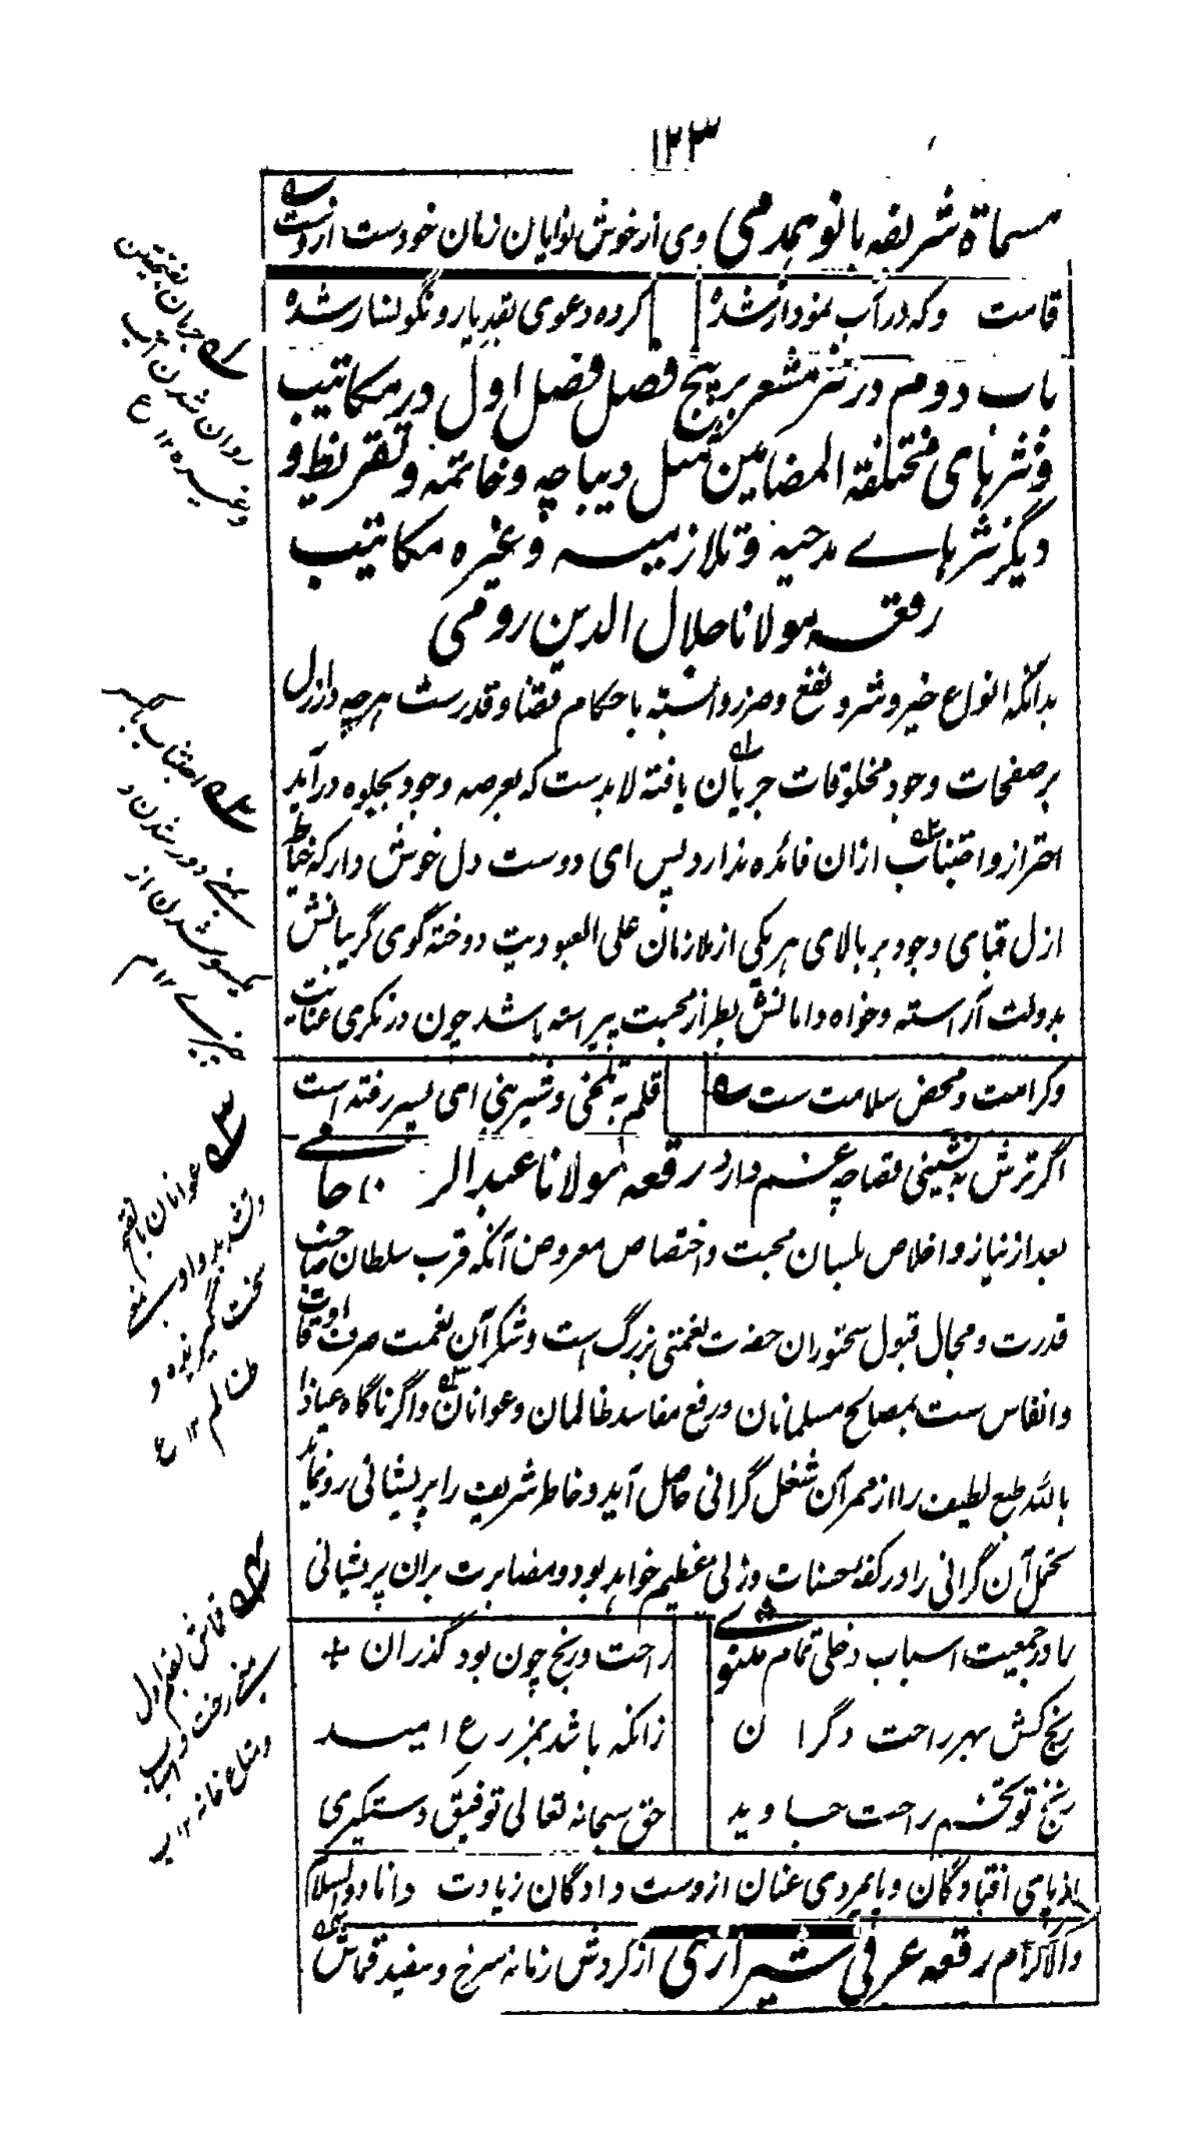 ۱۲۳
مسماة شریفه بانو همدمی وی از خوش نوایان زمان خودست ازوست
قامت وکه در آب نمودار شده کرده دعوی بقد یار و نگونسار شده
باب دوم در نثر مشعر بر پنج فصل فصل اول در مکاتیب
و نثرهای مختلفة المضامین مثل دیباچه و خاتمه و تقریظ و
دیگر نثرهاے مدحیه و تلازمیه و غیره مکاتیب
رقعه مولانا جلال الدین رومی
بدانکه انواع خیر و شر و نفع و ضرر وابسته باحکام قضا و قدرست هر چه در ازل
بر صفحات وجود مخلوقات جریان یافته لابدست که بعرصه وجود بجلوه درآید
احتراز و اجتناب ازان فائده ندارد پس ای دوست دل خوش دار که خیاط
ازل قبای وجود بر بالای هر یکی از ملازمان علی العبودیت دوخته گوی گریبانش
بدولت آراسته و خواه دامانش بطراز محبت پیراسته باشد چون در نگری عنایت
و کرامت و محض سلامت ست قلم به تلخی و شیرینی ای پسر رفته است
اگر ترش به نشینی قضا چه غم دارد رقعه مولانا عبدالر جامی
بعد از نیاز و اخلاص بلسان محبت و اختصاص معروض آنکه قرب سلطان صاحب
قدرت و مجال قبول سخنوران حضرت نعمتی بزرگ است و شکر آن نعمت صرف اوقات
و انفاس ست بمصالح مسلمانان و رفع مفاسد ظالمان و عوانان و اگر ناگاه عیاذا
بالله طبع لطیف را از ممر آن شغل گرانی حاصل آید و خاطر شریف را پریشانی رو نماید
تحمل آن گرانی را در کفه حسنات وزنی عظیم خواهد بود و مصابرت بران پریشانی
را در جمعیت اسباب دخلی تمام مثنوے راحت و رنج چون بود گذران +
رنج کش بهر راحت دگرا ن زانکه باشد بمزرع امید
رنج تو تخم راحت جاوید حق سبحانه تعالی توفیق دستگیری
از پای افتادگان و پایمردی عنان از دست دادگان زیادت داناد والسلام
والاکرام رقعه عرفی شیرازی از گردش زمانه سرخ و سفید قماش
جریان بفتحتین
روان شدن آب
وغیره ۱۲ ع
اجتناب بکسر
بمعنے دور شدن و
یکسو شدن از
چیزے ۱۲ م
عوانان بالفتح
و تشدید واو بمعنی
سخت گیرنده و
ظالم ۱۲ ع
قماش بضم اول
بمعنی رخت و اسباب
و متاع خانه ۱۲